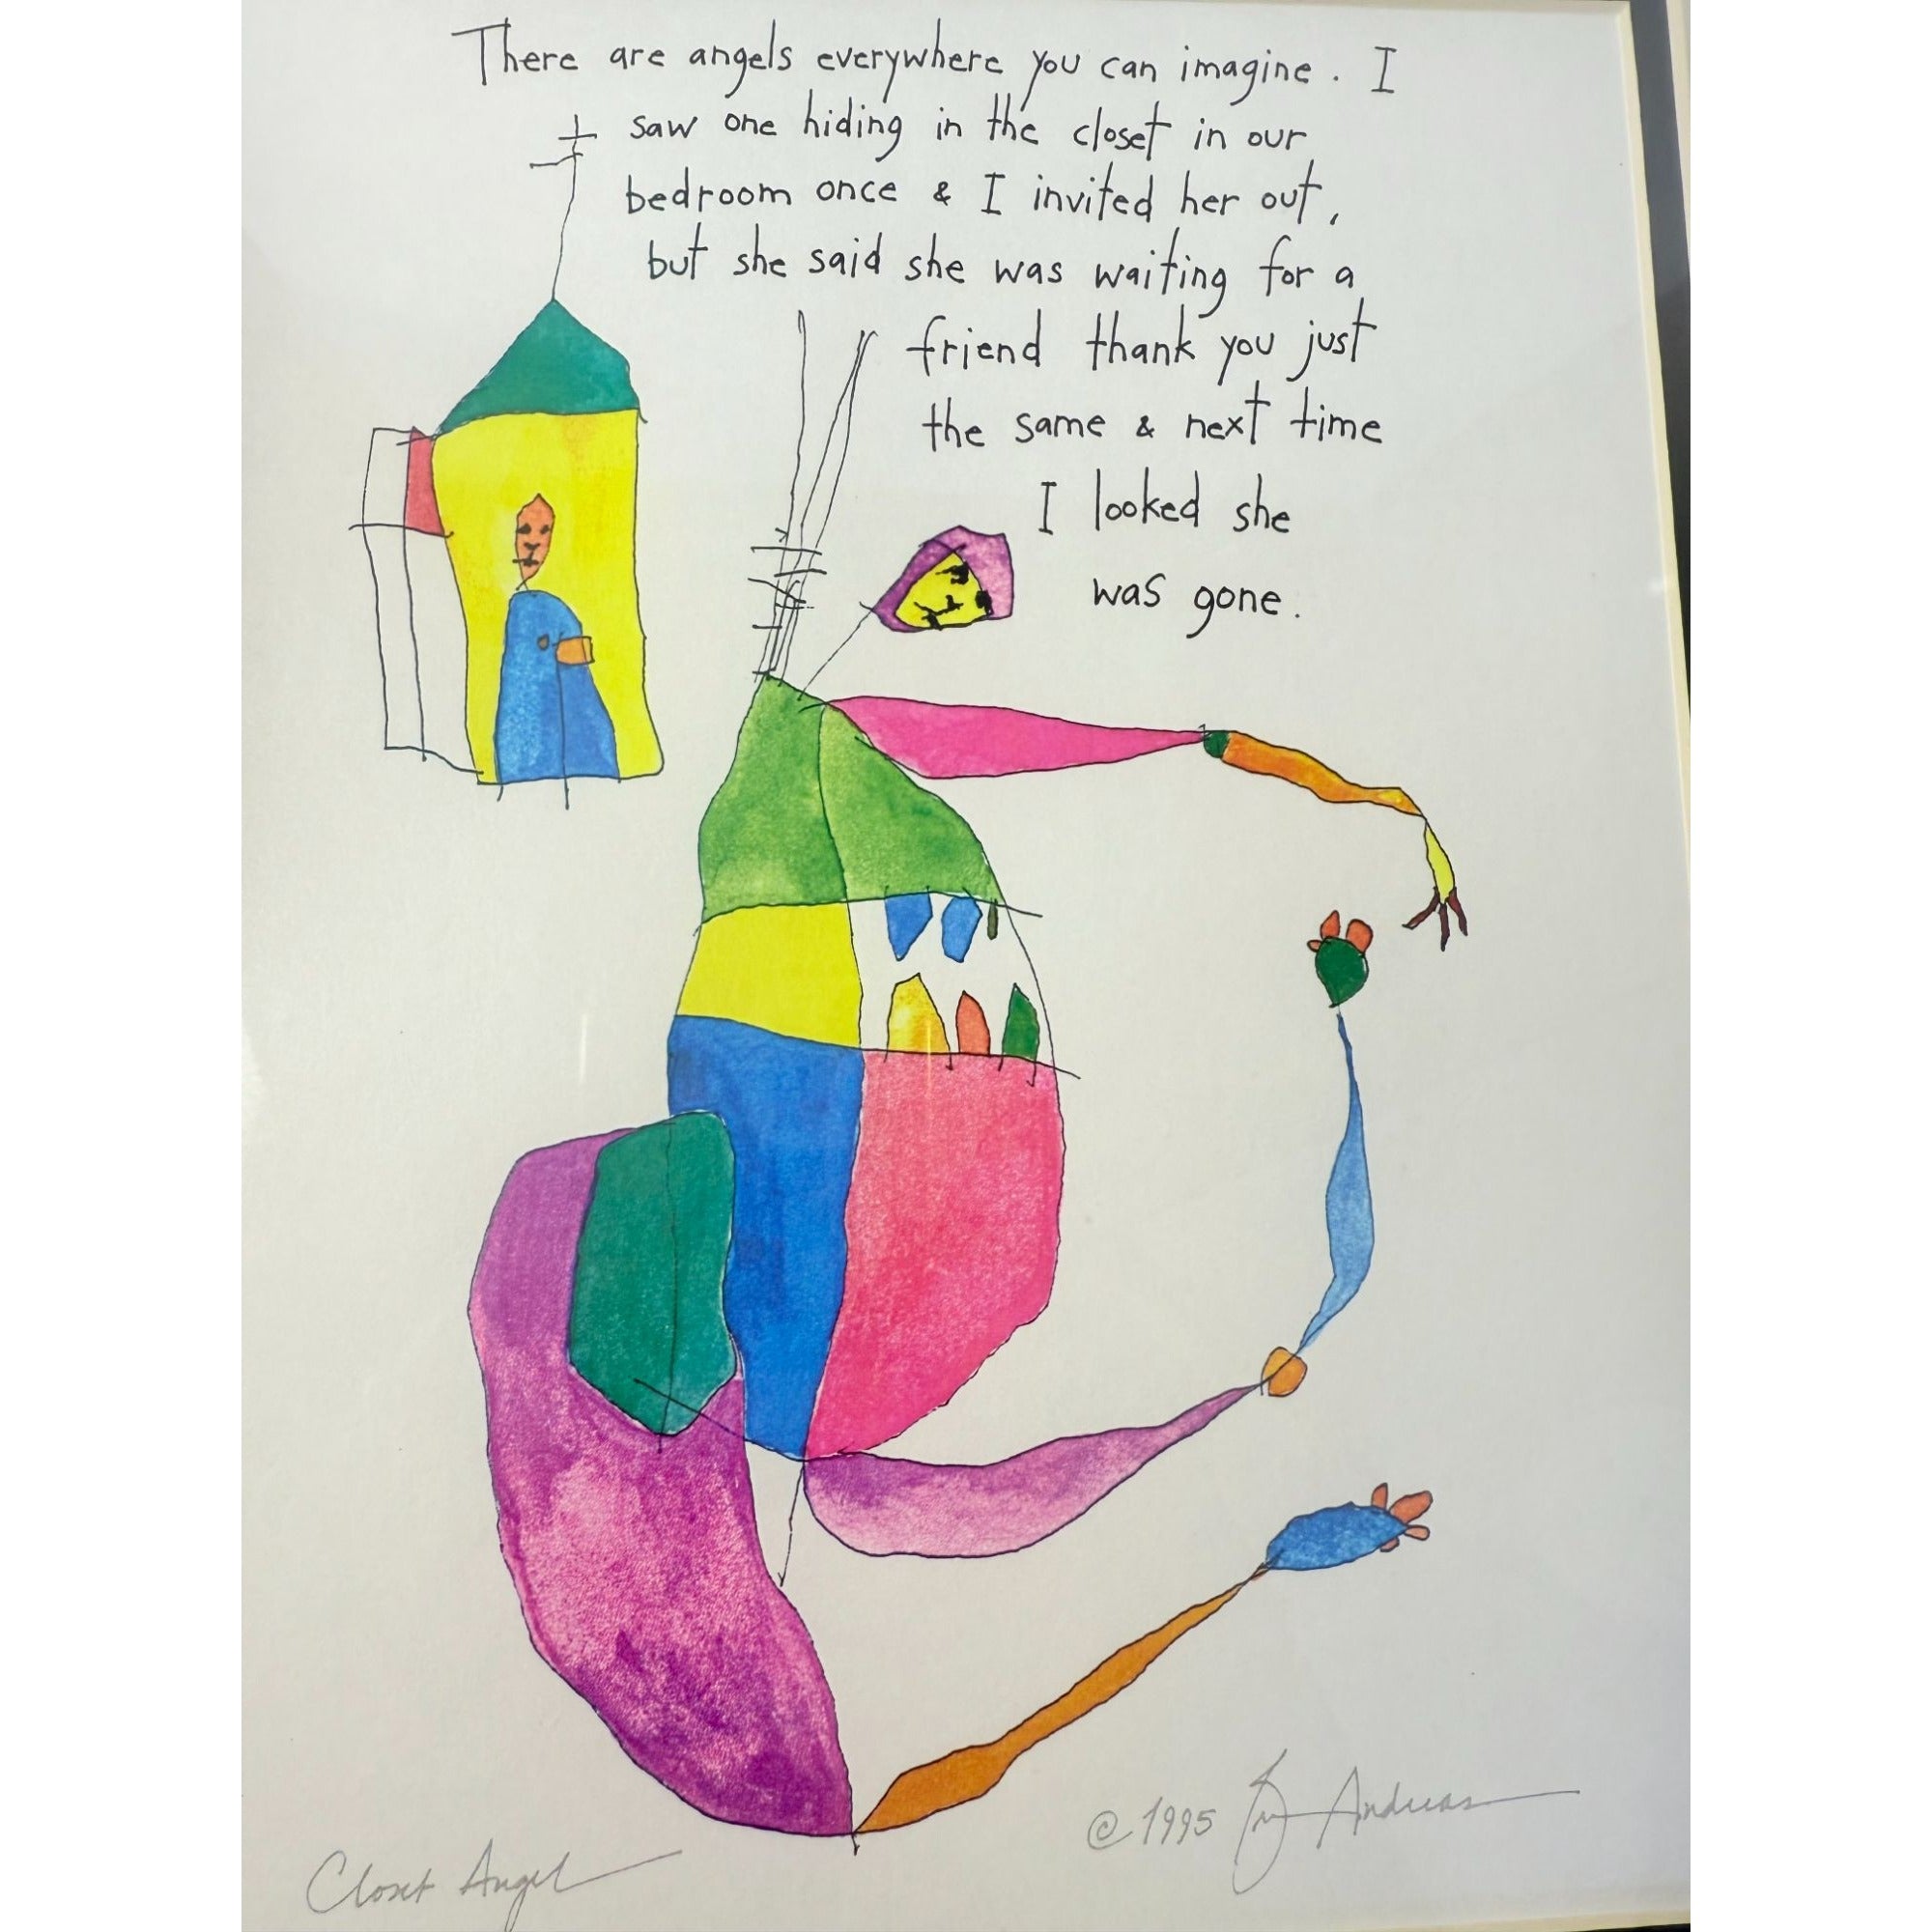 There are angels everywhere you can imagine. I
saw one hiding in the closet in our
bedroom once & I invited her out,
but she said she was waiting for a
friend thank you just
the same & next time
I looked she
was gone.
© 1995 Brian Andreas
Closet Angel